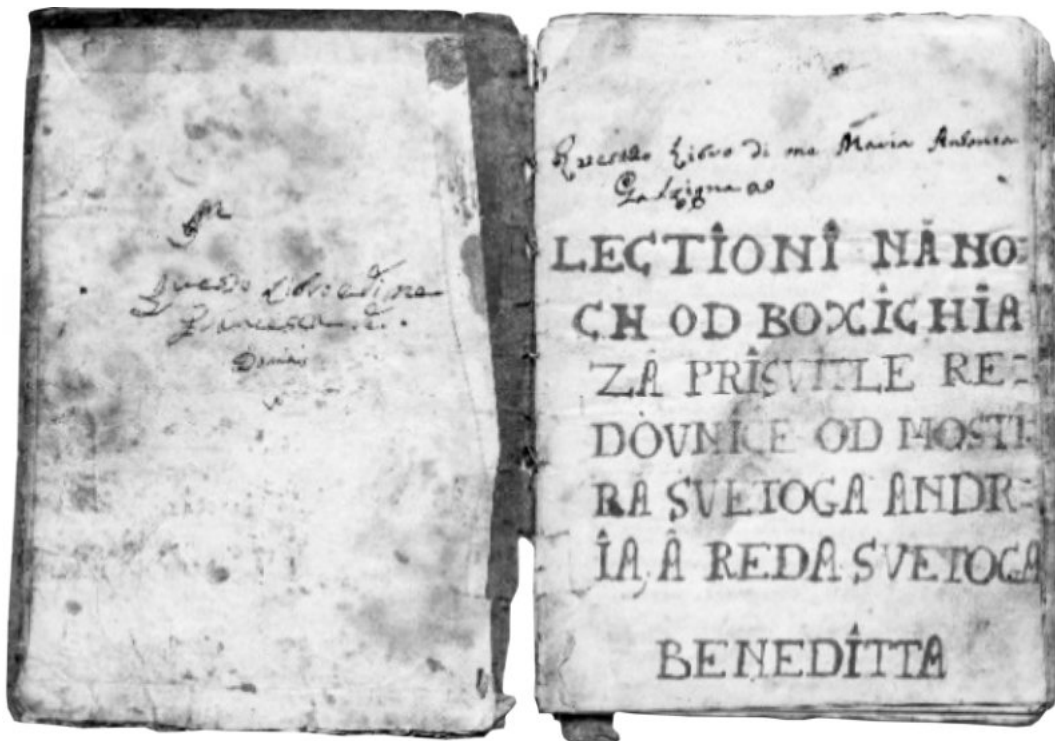 Questo Libro di me
Francesca
Questo Libro di me Maria Antonia
Galzigna
LECTIÔNÎ NÂ NO:
CH OD BOXÎCHÎA
ZÂ PRÎSVITLE RE:
DÒVNICE OD MOSTI
RA SVETOGA ANDR:
ÎA, Â REDA SVETOGA
BENEDÎTTA